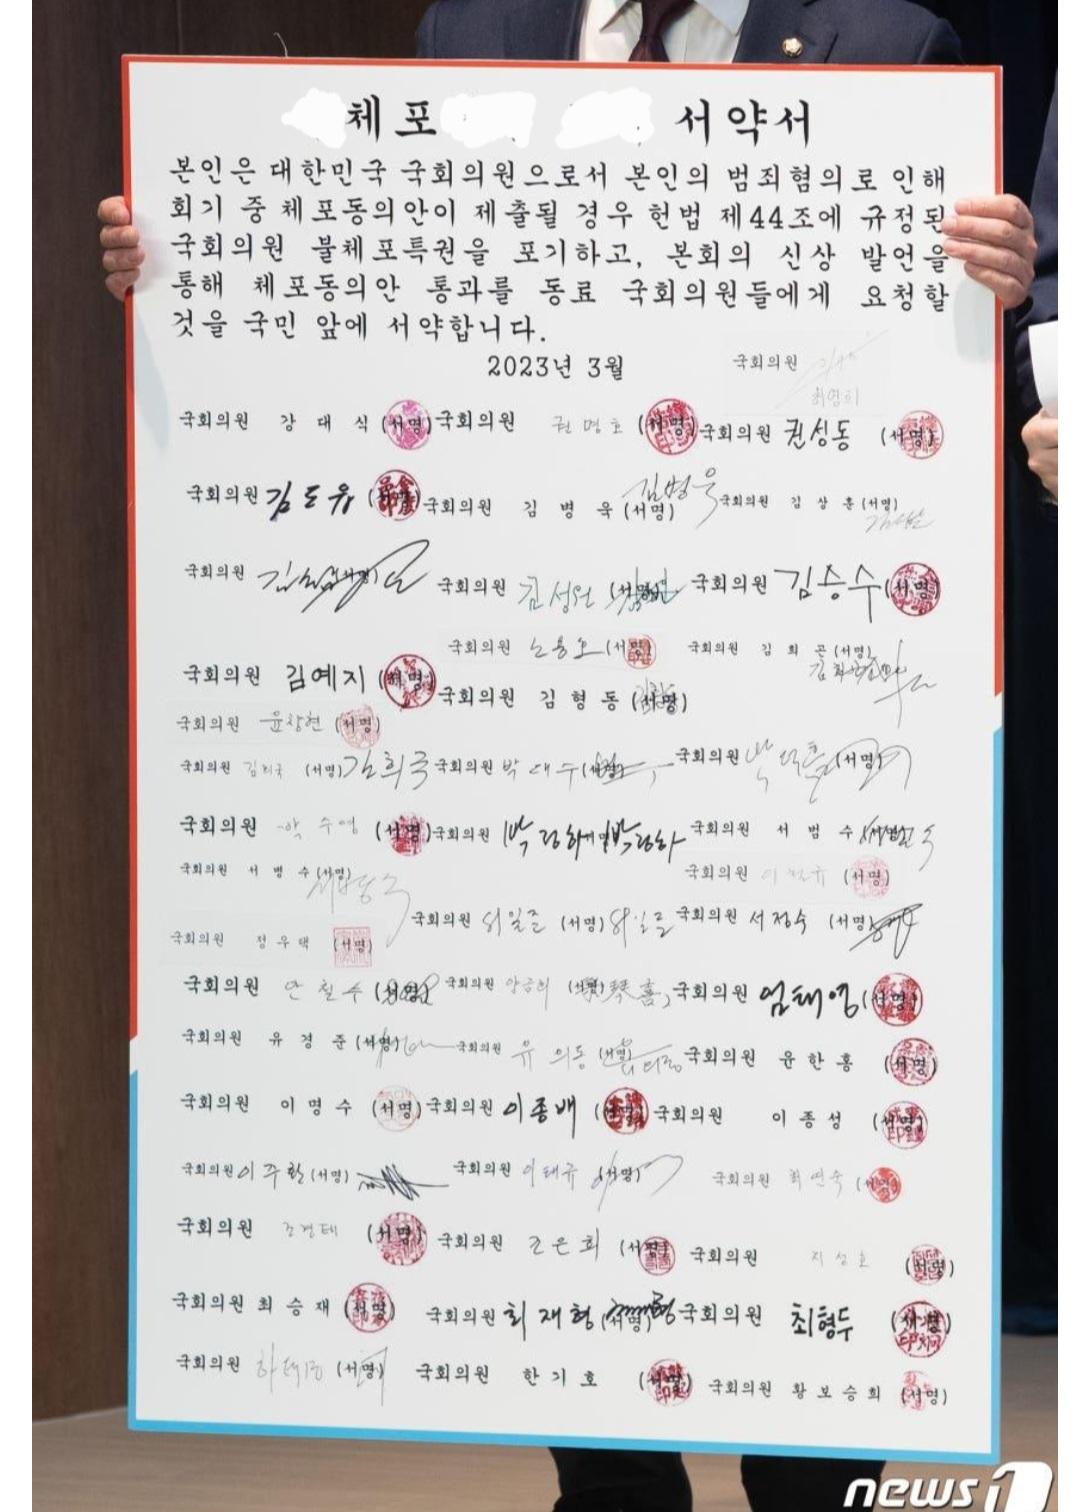 체포 서약서
본인은 대한민국 국회의원으로서 본인의 범죄혐의로 인해
회기 중 체포동의안이 제출될 경우 헌법 제44조에 규정된
국회의원 불체포특권을 포기하고, 본회의 신상 발언을
통해 체포동의안 통과를 동료 국회의원들에게 요청할
것을 국민 앞에 서약합니다.
2023년 3월
국회의원 최영희
국회의원 강대식 (서명) 국회의원 권명호 (서명) 국회의원 권성동 (서명)
국회의원 김도읍 (서명) 국회의원 김병욱 (서명) 김병욱 국회의원 김상훈 (서명)
국회의원 (서명) 국회의원 김성원 (서명) 국회의원 김승수 (서명)
국회의원 노용호 (서명) 국회의원 김희곤 (서명)
국회의원 김예지 (서명) 국회의원 김형동 (서명)
국회의원 윤창현 (서명)
국회의원 김희국 (서명) 김희국 국회의원 박대수 (서명) 국회의원 박덕흠 (서명)
국회의원 박수영 (서명) 국회의원 박정하 (서명) 박정하 국회의원 서범수 (서명)
국회의원 서병수 (서명) 국회의원 (서명)
국회의원 정우택 (서명) 국회의원 서일준 (서명) 서일준 국회의원 서정숙 (서명)
국회의원 안철수 (서명) 국회의원 양금희 (서명) 국회의원 엄태영 (서명)
국회의원 유경준 (서명) 국회의원 유의동 (서명) 국회의원 윤한홍 (서명)
국회의원 이명수 (서명) 국회의원 이종배 (서명) 국회의원 이종성 (서명)
국회의원 이주환 (서명) 국회의원 이태규 (서명) 국회의원 최연숙 (서명)
국회의원 조경태 (서명) 국회의원 조은희 (서명) 국회의원 지성호 (서명)
국회의원 최승재 (서명) 국회의원 최재형 (서명) 국회의원 최형두 (서명)
국회의원 하태경 (서명) 국회의원 한기호 (서명) 국회의원 황보승희 (서명)
news1